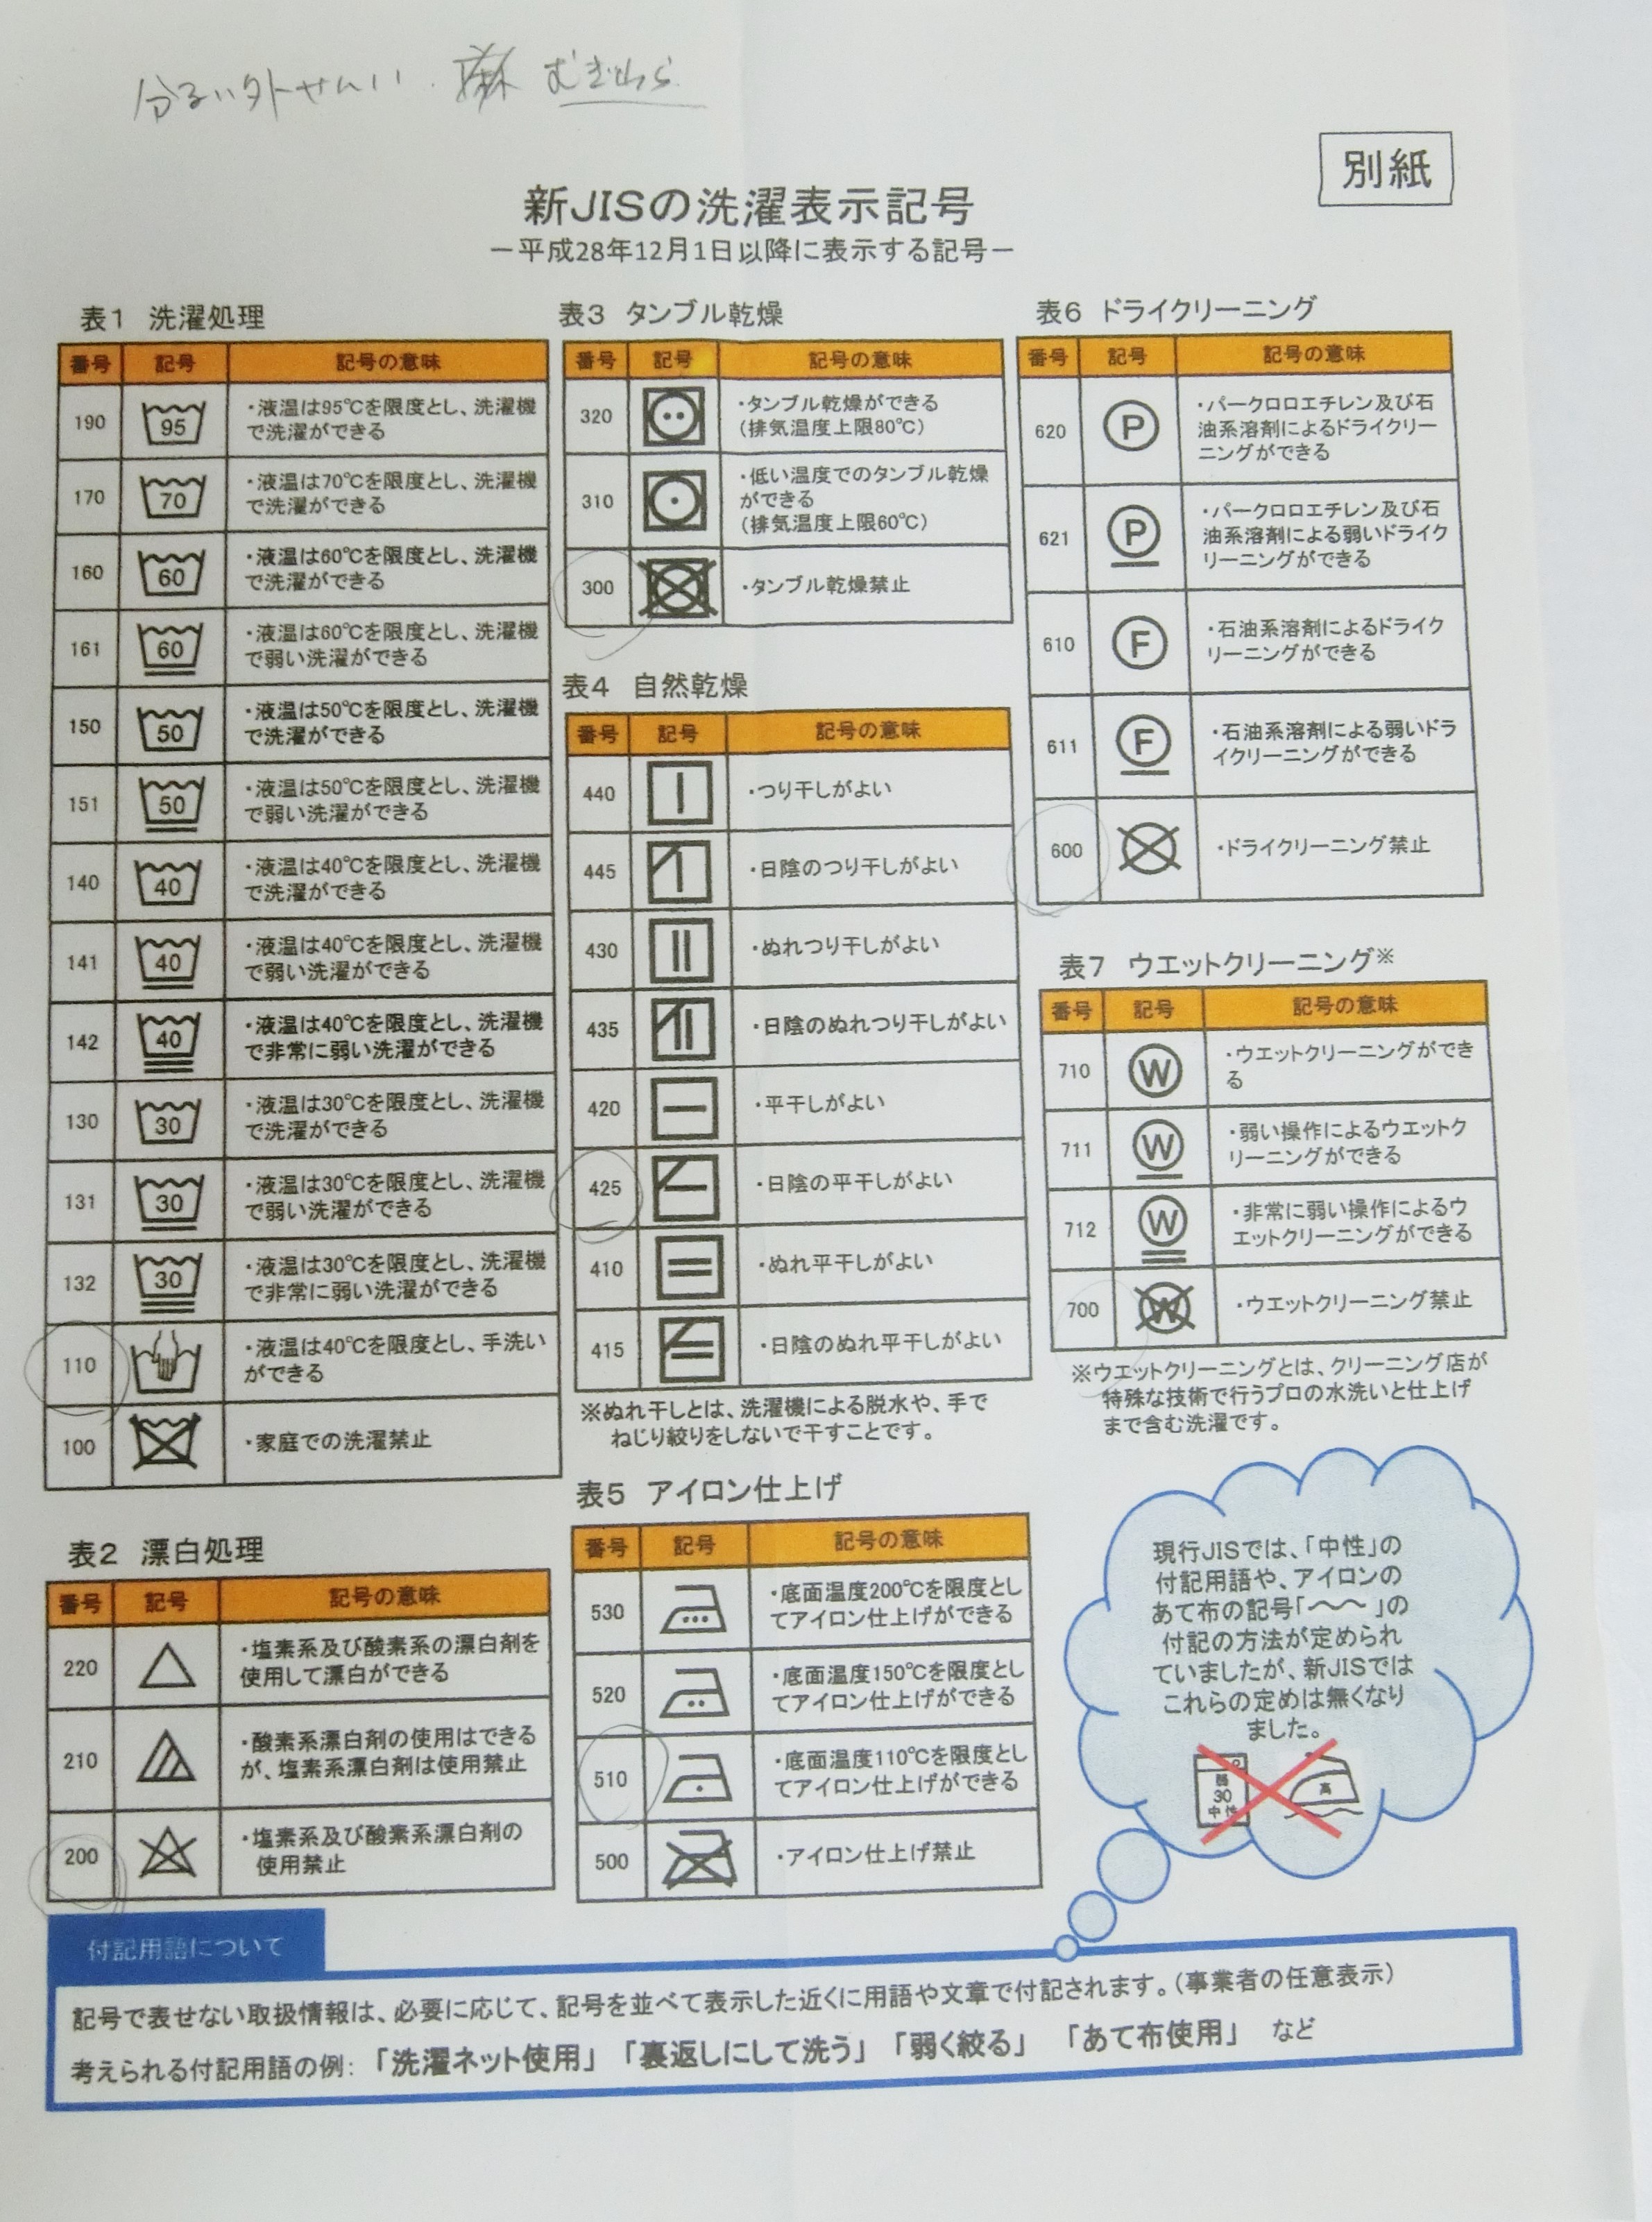 分るい外せんい. 麻 むぎわら
別紙
新JISの洗濯表示記号
－平成28年12月1日以降に表示する記号－
表1 洗濯処理
番号 記号 記号の意味
190 95 ・液温は95℃を限度とし、洗濯機
で洗濯ができる
170 70 ・液温は70℃を限度とし、洗濯機
で洗濯ができる
160 60 ・液温は60℃を限度とし、洗濯機
で洗濯ができる
161 60 ・液温は60℃を限度とし、洗濯機
で弱い洗濯ができる
150 50 ・液温は50℃を限度とし、洗濯機
で洗濯ができる
151 50 ・液温は50℃を限度とし、洗濯機
で弱い洗濯ができる
140 40 ・液温は40℃を限度とし、洗濯機
で洗濯ができる
141 40 ・液温は40℃を限度とし、洗濯機
で弱い洗濯ができる
142 40 ・液温は40℃を限度とし、洗濯機
で非常に弱い洗濯ができる
130 30 ・液温は30℃を限度とし、洗濯機
で洗濯ができる
131 30 ・液温は30℃を限度とし、洗濯機
で弱い洗濯ができる
132 30 ・液温は30℃を限度とし、洗濯機
で非常に弱い洗濯ができる
110 ・液温は40℃を限度とし、手洗い
ができる
100 ・家庭での洗濯禁止
表2 漂白処理
番号 記号 記号の意味
220 ・塩素系及び酸素系の漂白剤を
使用して漂白ができる
210 ・酸素系漂白剤の使用はできる
が、塩素系漂白剤は使用禁止
200 ・塩素系及び酸素系漂白剤の
使用禁止
表3 タンブル乾燥
番号 記号 記号の意味
320 ・タンブル乾燥ができる
(排気温度上限80℃)
310 ・低い温度でのタンブル乾燥
ができる
(排気温度上限60℃)
300 ・タンブル乾燥禁止
表4 自然乾燥
番号 記号 記号の意味
440 ・つり干しがよい
445 ・日陰のつり干しがよい
430 ・ぬれつり干しがよい
435 ・日陰のぬれつり干しがよい
420 ・平干しがよい
425 ・日陰の平干しがよい
410 ・ぬれ平干しがよい
415 ・日陰のぬれ平干しがよい
※ぬれ干しとは、洗濯機による脱水や、手で
ねじり絞りをしないで干すことです。
表5 アイロン仕上げ
番号 記号 記号の意味
530 ・底面温度200℃を限度とし
てアイロン仕上げができる
520 ・底面温度150℃を限度とし
てアイロン仕上げができる
510 ・底面温度110℃を限度とし
てアイロン仕上げができる
500 ・アイロン仕上げ禁止
表6 ドライクリーニング
番号 記号 記号の意味
620 P ・パークロロエチレン及び石
油系溶剤によるドライクリー
ニングができる
621 P ・パークロロエチレン及び石
油系溶剤による弱いドライク
リーニングができる
610 F ・石油系溶剤によるドライク
リーニングができる
611 F ・石油系溶剤による弱いドラ
イクリーニングができる
600 ・ドライクリーニング禁止
表7 ウエットクリーニング※
番号 記号 記号の意味
710 W ・ウエットクリーニングができ
る
711 W ・弱い操作によるウエットク
リーニングができる
712 W ・非常に弱い操作によるウ
エットクリーニングができる
700 W ・ウエットクリーニング禁止
※ウエットクリーニングとは、クリーニング店が
特殊な技術で行うプロの水洗いと仕上げ
まで含む洗濯です。
現行JISでは、「中性」の
付記用語や、アイロンの
あて布の記号「〜〜」の
付記の方法が定められ
ていましたが、新JISでは
これらの定めは無くなり
ました。
弱
30
中性
高
付記用語について
記号で表せない取扱情報は、必要に応じて、記号を並べて表示した近くに用語や文章で付記されます。(事業者の任意表示)
考えられる付記用語の例: 「洗濯ネット使用」 「裏返しにして洗う」 「弱く絞る」 「あて布使用」 など